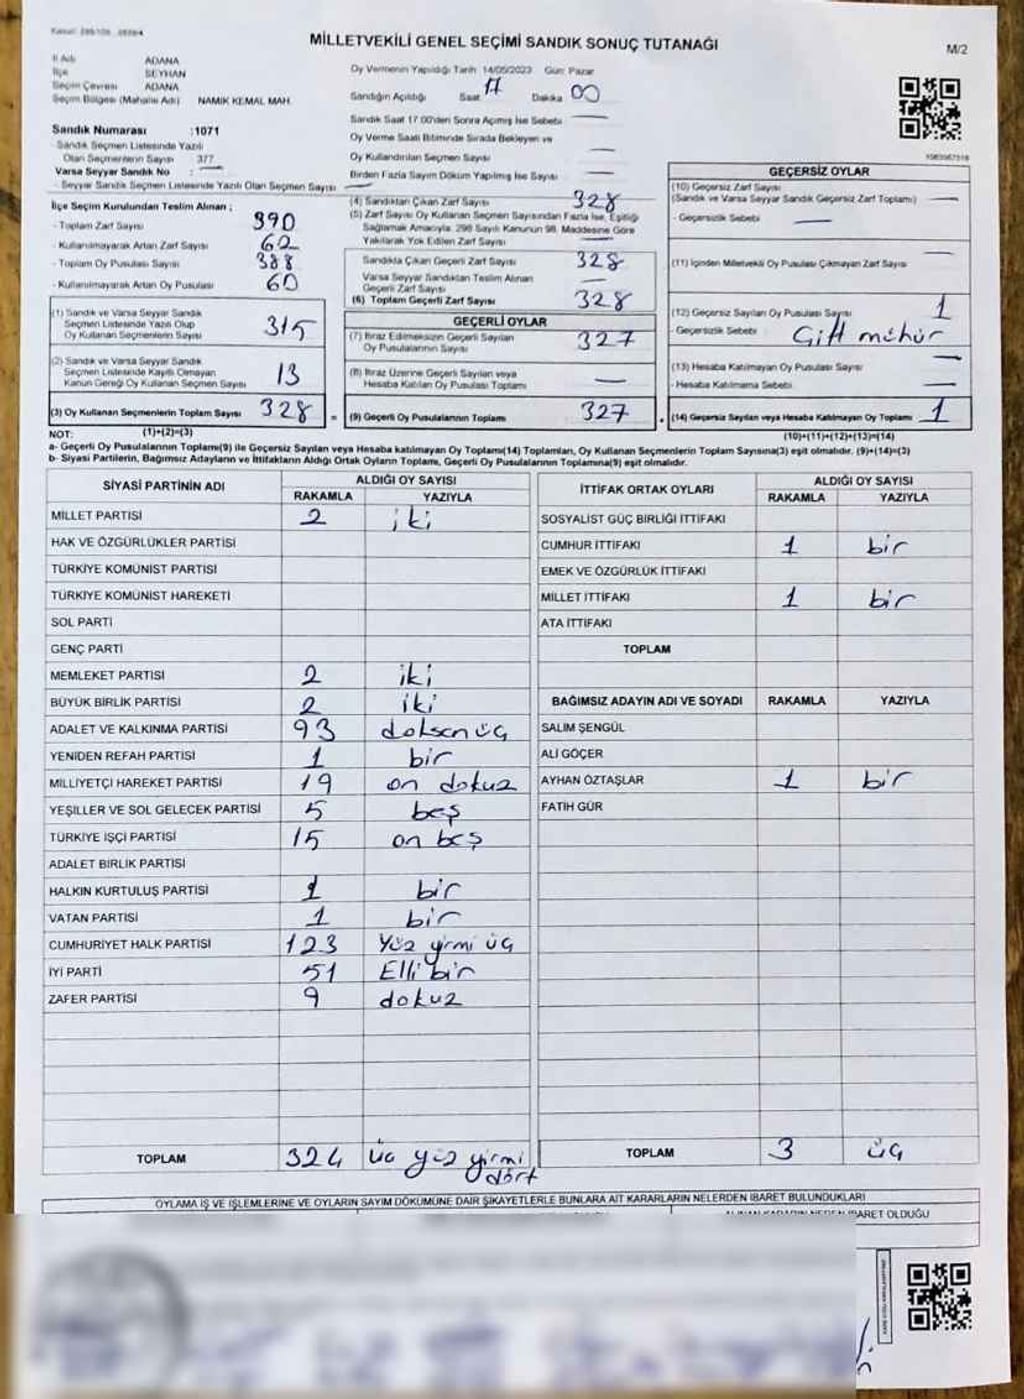 MİLLETVEKİLİ GENEL SEÇİMİ SANDIK SONUÇ TUTANAĞI
M/2
İl Adı ADANA
İlçe SEYHAN
Seçim Çevresi ADANA
Seçim Bölgesi (Mahalle Adı) NAMIK KEMAL MAH.
Sandık Numarası :1071
Sandık Seçmen Listesinde Yazılı
Olan Seçmenlerin Sayısı 377
Varsa Seyyar Sandık No : —
- Seyyar Sandık Seçmen Listesinde Yazılı Olan Seçmen Sayısı —
İlçe Seçim Kurulundan Teslim Alınan ;
- Toplam Zarf Sayısı 390
- Kullanılmayarak Artan Zarf Sayısı 62
- Toplam Oy Pusulası Sayısı 388
- Kullanılmayarak Artan Oy Pusulası 60
(1) Sandık ve Varsa Seyyar Sandık
Seçmen Listesinde Yazılı Olup
Oy Kullanan Seçmenlerin Sayısı 315
(2) Sandık ve Varsa Seyyar Sandık
Seçmen Listesinde Kayıtlı Olmayan
Kanun Gereği Oy Kullanan Seçmen Sayısı 13
(3) Oy Kullanan Seçmenlerin Toplam Sayısı 328
Oy Vermenin Yapıldığı Tarih 14/05/2023 Gün: Pazar
Sandığın Açıldığı Saat 17 Dakika 00
Sandık Saat 17.00'den Sonra Açılmış İse Sebebi —
Oy Verme Saati Bitiminde Sırada Bekleyen ve
Oy Kullandırılan Seçmen Sayısı —
Birden Fazla Sayım Döküm Yapılmış İse Sayısı —
(4) Sandıktan Çıkan Zarf Sayısı 328
(5) Zarf Sayısı Oy Kullanan Seçmen Sayısından Fazla İse, Eşitliği
Sağlamak Amacıyla, 298 Sayılı Kanunun 98. Maddesine Göre
Yakılarak Yok Edilen Zarf Sayısı —
Sandıkta Çıkan Geçerli Zarf Sayısı 328
Varsa Seyyar Sandıktan Teslim Alınan
Geçerli Zarf Sayısı —
(6) Toplam Geçerli Zarf Sayısı 328
GEÇERLİ OYLAR
(7) İtiraz Edilmeksizin Geçerli Sayılan
Oy Pusulalarının Sayısı 327
(8) İtiraz Üzerine Geçerli Sayılan veya
Hesaba Katılan Oy Pusulası Toplamı —
= (9) Geçerli Oy Pusulalarının Toplamı 327
GEÇERSİZ OYLAR
(10) Geçersiz Zarf Sayısı
(Sandık ve Varsa Seyyar Sandık Geçersiz Zarf Toplamı) —
- Geçersizlik Sebebi —
(11) İçinden Milletvekili Oy Pusulası Çıkmayan Zarf Sayısı —
(12) Geçersiz Sayılan Oy Pusulası Sayısı 1
- Geçersizlik Sebebi Çift mühür
(13) Hesaba Katılmayan Oy Pusulası Sayısı —
- Hesaba Katılmama Sebebi —
(14) Geçersiz Sayılan veya Hesaba Katılmayan Oy Toplamı 1
NOT: (1)+(2)=(3)
(10)+(11)+(12)+(13)=(14)
a- Geçerli Oy Pusulalarının Toplamı(9) ile Geçersiz Sayılan veya Hesaba katılmayan Oy Toplamı(14) Toplamları, Oy Kullanan Seçmenlerin Toplam Sayısına(3) eşit olmalıdır. (9)+(14)=(3)
b- Siyasi Partilerin, Bağımsız Adayların ve İttifakların Aldığı Ortak Oyların Toplamı, Geçerli Oy Pusulalarının Toplamına(9) eşit olmalıdır.
SİYASİ PARTİNİN ADI ALDIĞI OY SAYISI
RAKAMLA YAZIYLA
MİLLET PARTİSİ 2 iki
HAK VE ÖZGÜRLÜKLER PARTİSİ
TÜRKİYE KOMÜNİST PARTİSİ
TÜRKİYE KOMÜNİST HAREKETİ
SOL PARTİ
GENÇ PARTİ
MEMLEKET PARTİSİ 2 iki
BÜYÜK BİRLİK PARTİSİ 2 iki
ADALET VE KALKINMA PARTİSİ 93 doksan üç
YENİDEN REFAH PARTİSİ 1 bir
MİLLİYETÇİ HAREKET PARTİSİ 19 on dokuz
YEŞİLLER VE SOL GELECEK PARTİSİ 5 beş
TÜRKİYE İŞÇİ PARTİSİ 15 on beş
ADALET BİRLİK PARTİSİ
HALKIN KURTULUŞ PARTİSİ 1 bir
VATAN PARTİSİ 1 bir
CUMHURİYET HALK PARTİSİ 123 Yüz yirmi üç
İYİ PARTİ 51 Elli bir
ZAFER PARTİSİ 9 dokuz
TOPLAM 324 üç yüz yirmi
dört
İTTİFAK ORTAK OYLARI ALDIĞI OY SAYISI
RAKAMLA YAZIYLA
SOSYALİST GÜÇ BİRLİĞİ İTTİFAKI
CUMHUR İTTİFAKI 1 bir
EMEK VE ÖZGÜRLÜK İTTİFAKI
MİLLET İTTİFAKI 1 bir
ATA İTTİFAKI
TOPLAM
BAĞIMSIZ ADAYIN ADI VE SOYADI RAKAMLA YAZIYLA
SALİM ŞENGÜL
ALİ GÖÇER
AYHAN ÖZTAŞLAR 1 bir
FATİH GÜR
TOPLAM 3 üç
OYLAMA İŞ VE İŞLEMLERİNE VE OYLARIN SAYIM DÖKÜMÜNE DAİR ŞİKAYETLERLE BUNLARA AİT KARARLARIN NELERDEN İBARET BULUNDUKLARI
İBARET OLDUĞU